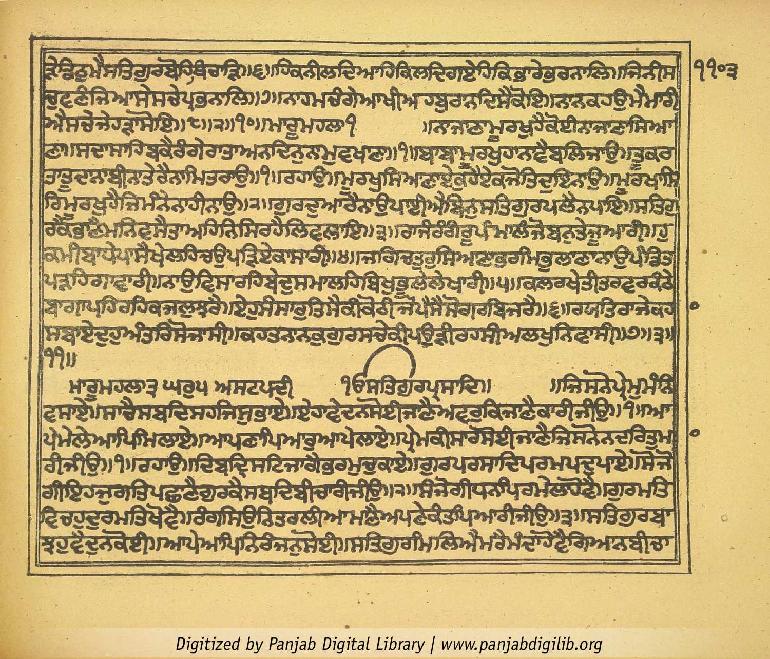 ਕੇਡਿਨੁਮੈਸਤਿਗੁਰਬੋਹਿਥਿਚਾੜਿ॥੬॥ਹਿਕਨੀਲਦਿਆਹਿਕਿਲਦਿਗਏਹਿਕਿਭਾਰੇਭਰਨਾਲਿ॥ਜਿਨੀਸ ੧੧੦੩
ਚੁਵਣੰਜਿਆਸੇਸਚੇਪ੍ਰਭਨਾਲਿ॥੭॥ਨਾਹਮਚੰਗੇਆਖੀਆਹਬੁਰਾਨਦਿਸੈਕੋਇ॥ਨਾਨਕਹਉਮੈਮਾਰੀ
ਐਸਚੇਜੇਹੜਾਸੋਇ॥੮॥੨॥੧੦॥ਮਾਰੂਮਹਲਾ੧ ॥ਨਾਜਾਣਾਮੂਰਖੁਹੈਕੋਈਨਾਜਾਣਾਸਿਆ
ਣਾ॥ਸਦਾਸਾਹਿਬਕੈਰੰਗੇਰਾਤਾਅਨਦਿਨੁਨਾਮੁਵਖਾਣਾ॥੧॥ਬਾਬਾਮੂਰਖੁਹਾਨਾਵੈਬਲਿਜਾਉ॥ਤੂਕਰ
ਤਾਤੂਦਾਨਾਬੀਨਾਤੇਰੈਨਾਮਿਤਰਾਉ॥੧॥ਰਹਾਉ॥ਮੂਰਖੁਸਿਆਣਾਏਕੁਹੈਏਕਜੋਤਿਦੁਇਨਾਉ॥ਮੂਰਖਾਸਿ
ਰਿਮੂਰਖੁਹੈਜਿਮੰਨੇਨਾਹੀਨਾਉ॥੨॥ਗੁਰਦੁਆਰੈਨਾਉਪਾਈਐਬਿਨੁਸਤਿਗੁਰਪਲੈਨਪਾਇ॥ਸਤਿਗੁ
ਰਕੈਭਾਣੈਮਨਿਵਸੈਤਾਅਹਿਨਿਸਿਰਹੈਲਿਵਲਾਇ॥੩॥ਰਾਜੰਰੰਗੰਰੂਪੰਮਾਲੰਜੋਬਨੁਤੇਜੂਆਰੀ॥ਹੁ
ਕਮੀਬਾਧੇਪਾਸੈਖੇਲਹਿਚਉਪੜਿਏਕਾਸਾਰੀ॥੪॥ਜਗਿਚਤੁਰੁਸਿਆਣਾਭਰਮਿਭੁਲਾਣਾਨਾਉਪੰਡਿਤ
ਪੜਹਿਗਾਵਾਰੀ॥ਨਾਉਵਿਸਾਰਹਿਬੇਦੁਸਮਾਲਹਿਬਿਖੁਭੂਲੇਲੇਖਾਰੀ॥੫॥ਕਲਰਖੇਤੀਤਰਵਰਕੰਠੇ
ਬਾਗਾਪਹਿਰਹਿਕਜਲੁਝਰੈ॥ਏਹੁਸੰਸਾਰੁਤਿਸੈਕੀਕੋਠੀਜੋਪੈਸੈਸੋਗਰਬਿਜਰੈ॥੬॥ਰਯਤਿਰਾਜੇਕਹਾ
ਸਬਾਏਦੁਹੁਅੰਤਰਿਸੋਜਾਸੀ॥ਕਹਤਨਾਨਕੁਗੁਰਸਚੇਕੀਪਉੜੀਰਹਸੀਅਲਖੁਨਿਵਾਸੀ॥੭॥੩॥
੧੧॥
ਮਾਰੂਮਹਲਾ੩ ਘਰੁ੫ ਅਸਟਪਦੀ ੴਸਤਿਗੁਰਪ੍ਰਸਾਦਿ॥ ॥ਜਿਸਨੋਪ੍ਰੇਮੁਮੰਨਿ
ਵਸਾਏ॥ਸਾਚੈਸਬਦਿਸਹਜਿਸੁਭਾਏ॥ਏਹਾਵੇਦਨਸੋਈਜਾਣੈਅਵਰੁਕਿਜਾਣੈਕਾਰੀਜੀਉ॥੧॥ਆ
ਪੇਮੇਲੇਆਪਿਮਿਲਾਏ॥ਆਪਣਾਪਿਆਰੁਆਪੇਲਾਏ॥ਪ੍ਰੇਮਕੀਸਾਰਸੋਈਜਾਣੈਜਿਸਨੋਨਦਰਿਤੁਮਾ
ਰੀਜੀਉ॥੧॥ਰਹਾਉ॥ਦਿਬਦ੍ਰਿਸਟਿਜਾਗੈਭਰਮੁਚੁਕਾਏ॥ਗੁਰਪਰਸਾਦਿਪਰਮਪਦੁਪਾਏ॥ਸੋਜੋ
ਗੀਇਹਜੁਗਤਿਪਛਾਣੈਗੁਰਕੈਸਬਦਿਬੀਚਾਰੀਜੀਉ॥੨॥ਸੰਜੋਗੀਧਨਪਿਰਮੇਲਾਹੋਵੈ॥ਗੁਰਮਤਿ
ਵਿਚਹੁਦੁਰਮਤਿਖੋਵੈ॥ਰੰਗਸਿਉਨਿਤਰਲੀਆਮਾਣੈਅਪਣੇਕੰਤਪਿਆਰੀਜੀਉ॥੩॥ਸਤਿਗੁਰਬਾ
ਝਹੁਵੈਦੁਨਕੋਈ॥ਆਪੇਆਪਿਨਿਰੰਜਨੁਸੋਈ॥ਸਤਿਗੁਰਮਿਲਿਐਮਰੈਮੰਦਾਹੋਵੈਗਿਆਨਬੀਚਾ
Digitized by Panjab Digital Library | www.panjabdigilib.org